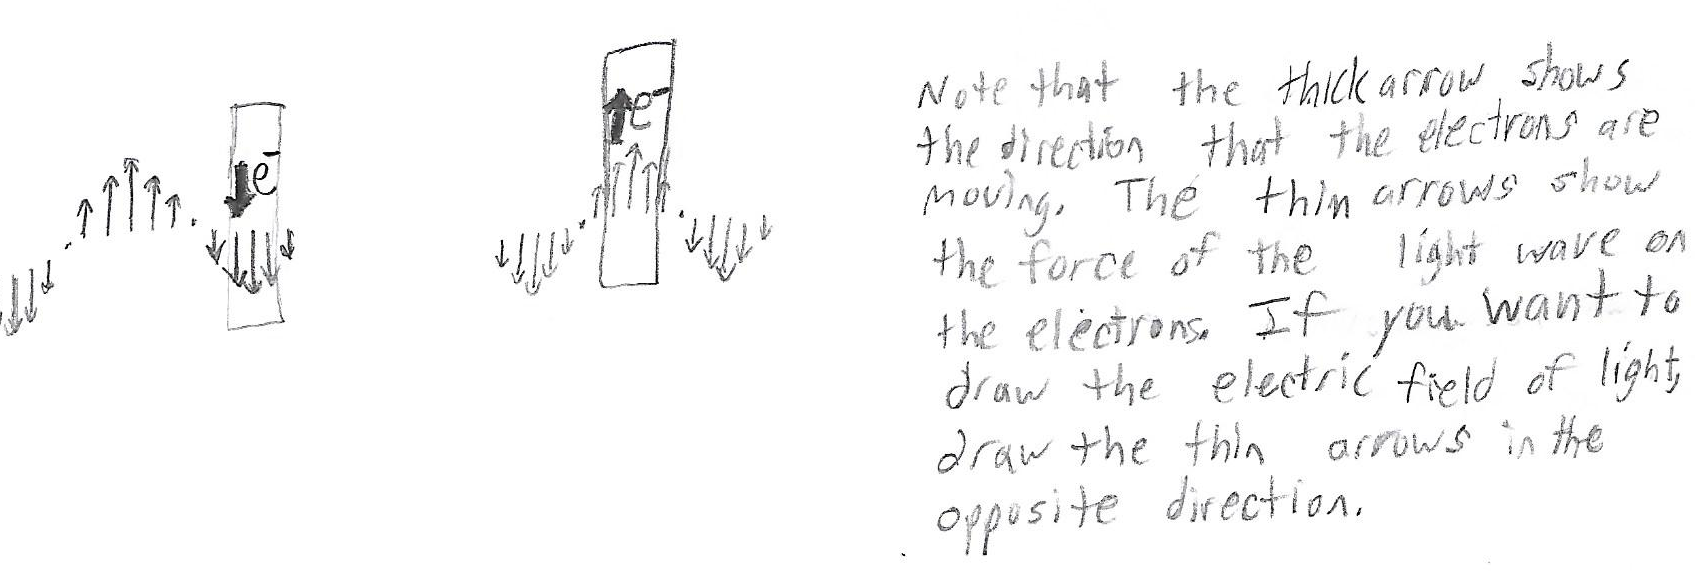 e⁻
e⁻
Note that the thick arrow shows
the direction that the electrons are
moving. The thin arrows show
the force of the light wave on
the electrons. If you want to
draw the electric field of light,
draw the thin arrows in the
opposite direction.